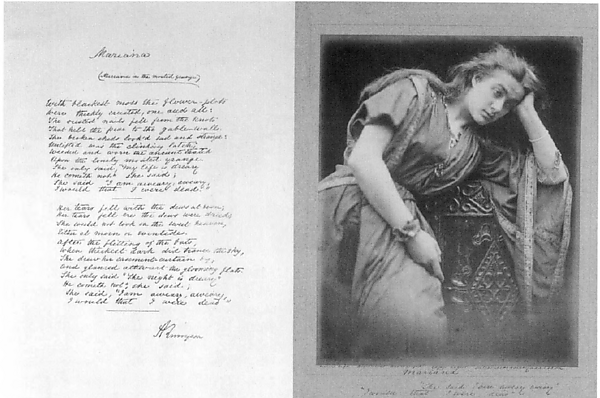 Mariana
(Mariana in the moated grange)
With blackest moss the flower-plots
Were thickly crusted, one and all:
The rusted nails fell from the knots
That held the pear to the gable-wall.
The broken sheds look'd sad and strange:
Unlifted was the clinking latch;
Weeded and worn the ancient thatch
Upon the lonely moated grange
She only said, "My life is dreary
He cometh not" she said;
She said "I am aweary, aweary,
I would that I were dead."
Her tears fell with the dews at even;
Her tears fell ere the dews were dried;
She could not look on the sweet heaven,
Either at morn or eventide.
After the flitting of the bats,
When thickest dark did trance the sky,
She drew her casement-curtain by,
And glanced athwart the glooming flats.
She only said "The night is dreary
He cometh not" she said;
She said, "I am aweary, aweary,
I would that I were dead"
A Tennyson
Mariana
"She said I am aweary aweary
I would that I were dead"